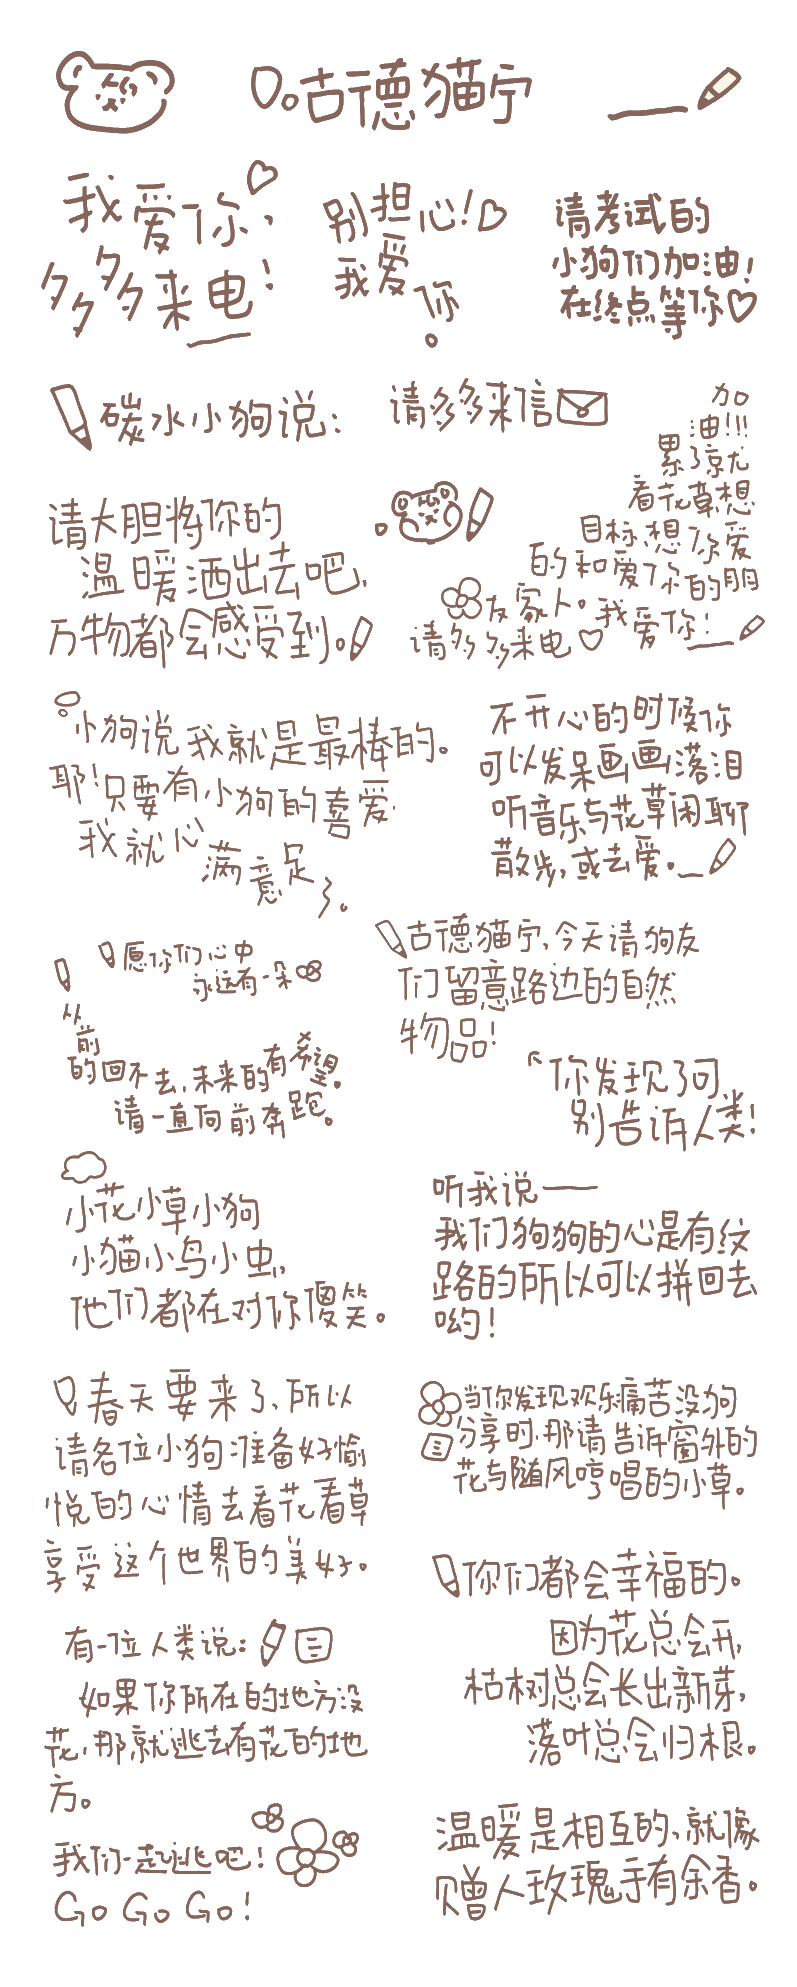 咕德猫宁
我爱你,
多多多多来电!
别担心!
我爱你。
请考试的
小狗们加油!
在终点等你
碳水小狗说:
请多多来信
加
油!!!
累了就尤
看花草想
目标,想了你爱
的和爱了你的朋
友家人。我爱你!
请多多来电
请大胆将你的
温暖洒出去吧,
万物都会感受到。
小狗说我就是最棒的。
耶!只要有小狗的喜爱
我就心满意足了。
不开心的时候你
可以发呆画画落泪
听音乐与花草闲聊
散步,或去爱。
愿你们心中
永远有一朵
从前
的回不去,未来的有希望。
请一直向前奔跑。
古德猫宁,今天请狗友
们留意路边的自然
物品!
你发现了可
别告诉人类!
小花小草小狗
小猫小鸟小虫,
他们都在对你傻笑。
听我说——
我们狗狗的心是有纹
路的所以可以拼回去
哟!
春天要来了,所以
请各位小狗准备好愉
悦的心情去看花看草
享受这个世界的美好。
当你发现欢乐痛苦没狗
分享时,那请告诉窗外的
花与随风哼唱的小草。
你们都会幸福的。
因为花总会开,
枯树总会长出新芽,
落叶总会归根。
有一位人类说:
如果你所在的地方没
花,那就逃去有花的地
方。
我们一起逃吧!
Go Go Go!
温暖是相互的,就像
赠人玫瑰手有余香。